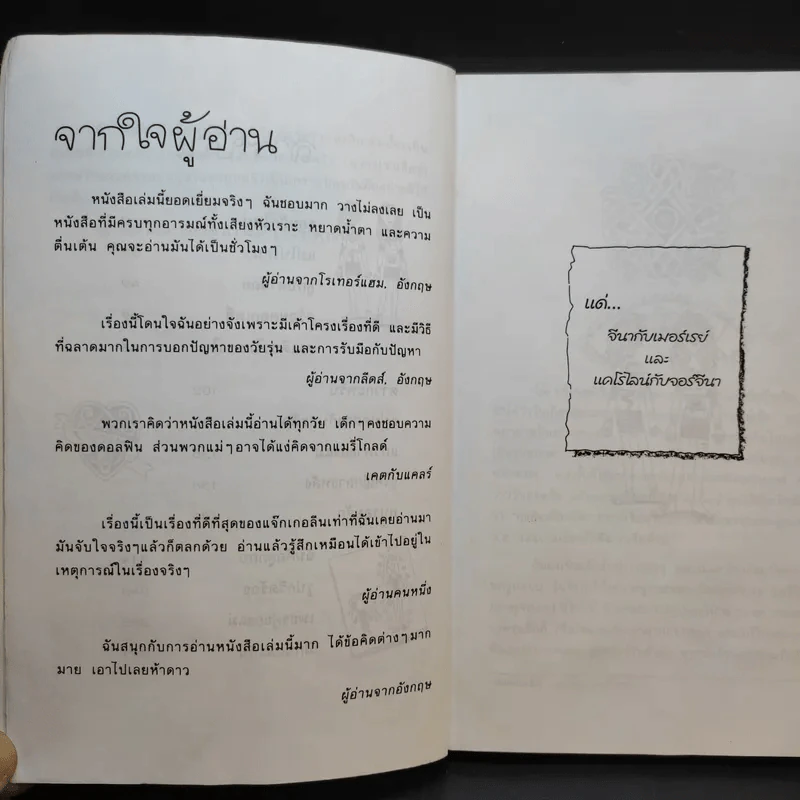 จากใจผู้อ่าน
หนังสือเล่มนี้ยอดเยี่ยมจริงๆ ฉันชอบมาก วางไม่ลงเลย เป็น
หนังสือที่มีครบทุกอารมณ์ทั้งเสียงหัวเราะ หยาดน้ำตา และความ
ตื่นเต้น คุณจะอ่านมันได้เป็นชั่วโมงๆ
ผู้อ่านจากโรเทอร์แฮม. อังกฤษ
เรื่องนี้โดนใจฉันอย่างจังเพราะมีเค้าโครงเรื่องที่ดี และมีวิธี
ที่ฉลาดมากในการบอกปัญหาของวัยรุ่น และการรับมือกับปัญหา
ผู้อ่านจากลีดส์. อังกฤษ
พวกเราคิดว่าหนังสือเล่มนี้อ่านได้ทุกวัย เด็กๆคงชอบความ
คิดของดอลฟิน ส่วนพวกแม่ๆอาจได้แง่คิดจากแมรี่โกลด์
เคตกับแคลร์
เรื่องนี้เป็นเรื่องที่ดีที่สุดของแจ๊กเกอลีนเท่าที่ฉันเคยอ่านมา
มันจับใจจริงๆแล้วก็ตลกด้วย อ่านแล้วรู้สึกเหมือนได้เข้าไปอยู่ใน
เหตุการณ์ในเรื่องจริงๆ
ผู้อ่านคนหนึ่ง
ฉันสนุกกับการอ่านหนังสือเล่มนี้มาก ได้ข้อคิดต่างๆมาก
มาย เอาไปเลยห้าดาว
ผู้อ่านจากอังกฤษ
แด่...
จีนากับเมอร์เรย์
และ
แคโรไลน์กับจอร์จีนา